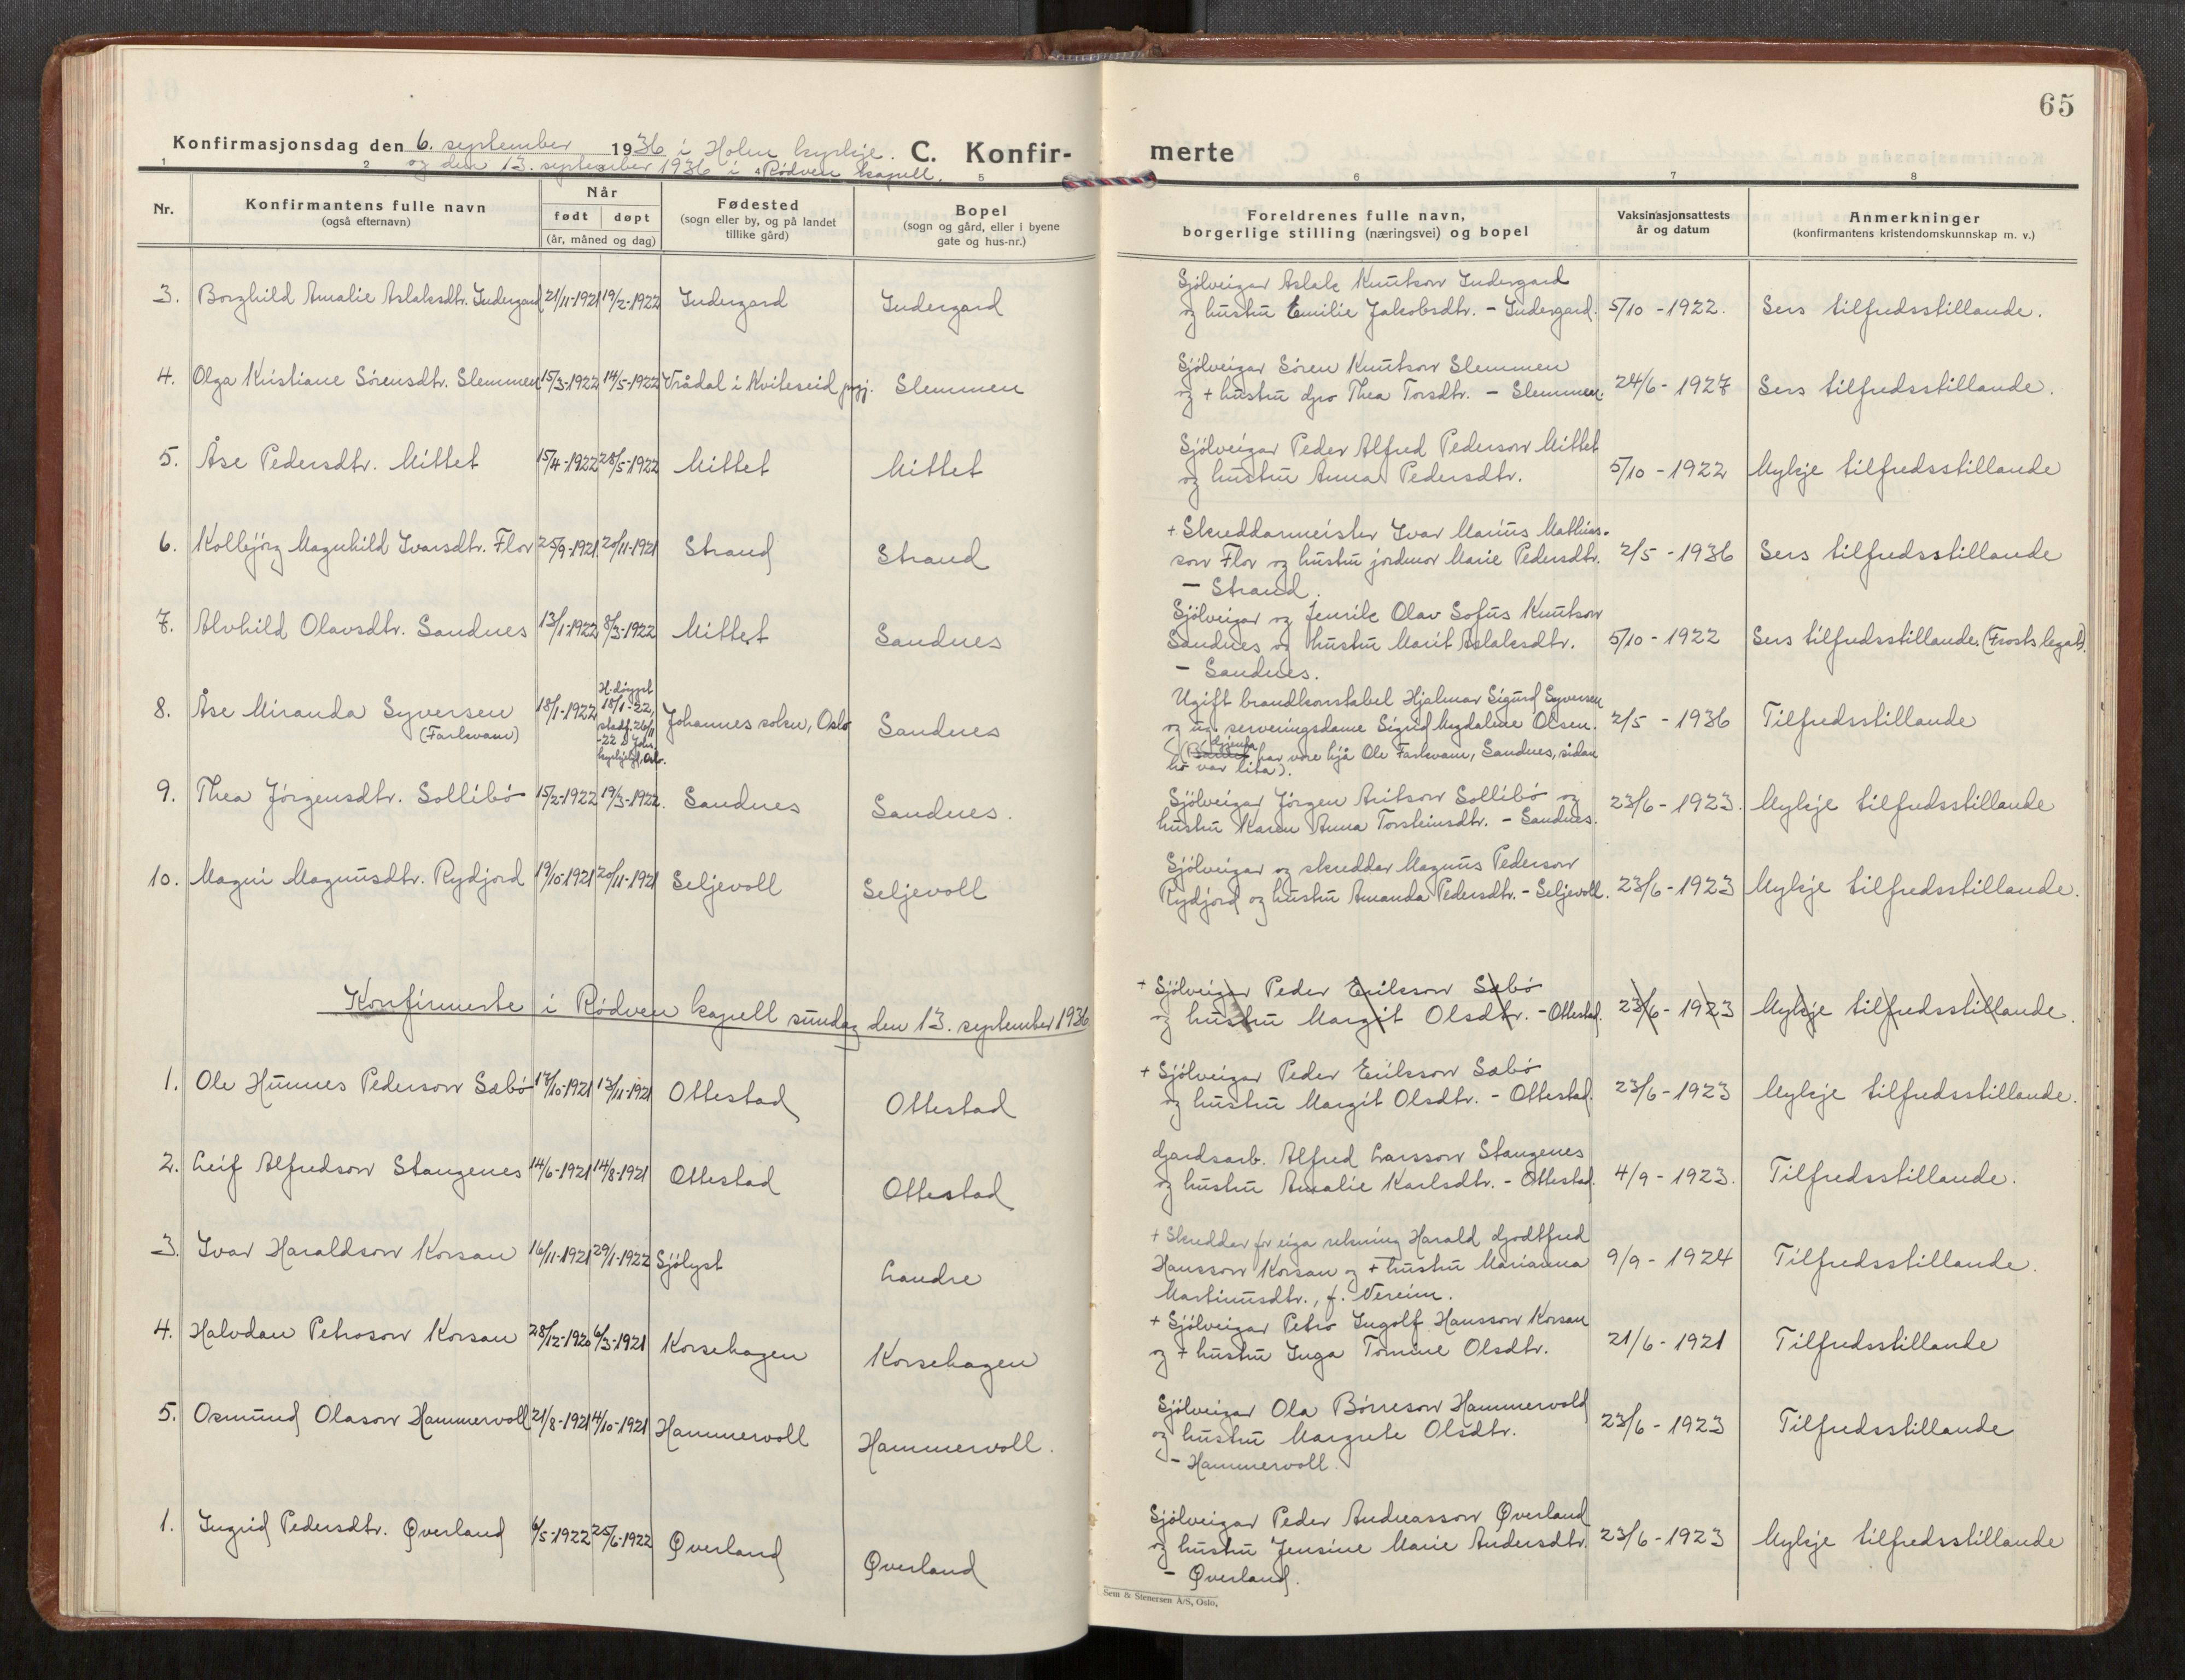 65
Konfirmasjonsdag den 6. september 1936 i Holm kyrkje. C. Konfir-
og den 13. september 1936 i Rødven kapell.
merte
1 2 4 5 6 7 8
Nr.
Konfirmantens fulle navn
(også efternavn)
Når
født døpt
(år, måned og dag)
Fødested
(sogn eller by, og på landet
tillike gård)
Bopel
(sogn og gård, eller i byene
gate og hus-nr.)
Foreldrenes fulle navn,
borgerlige stilling (næringsvei) og bopel
Vaksinasjonsattests
år og datum
Anmerkninger
(konfirmantens kristendomskunnskap m. v.)
3. Borghild Amalie Aslaksdtr. Indergard 21/11-1921 19/2-1922 Indergard Indergard
Sjölveigar Aslak Knutson Indergard
og hustru Emilie Jakobsdtr. - Indergard. 5/10 - 1922. Sers tilfredsstillande.
4. Olga Kristiane Sörensdtr. Slemmen 15/3-1922 14/5-1922 Vrådal i Kviteseid prgj. Slemmen
Sjölveigar Sören Knutson Slemmen
og + hustru Gro Thea Torsdtr. - Slemmen. 24/6 - 1927 Sers tilfredsstillande.
5. Åse Pedersdtr. Mittet 15/4-1922 28/5-1922 Mittet Mittet
Sjölveigar Peder Alfred Pederson Mittet
og hustru Anna Pedersdtr. 5/10 - 1922 Mykje tilfredsstillande
6. Kolbjörg Magnhild Ivarsdtr. Flor 25/9-1921 20/11-1921 Strand Strand
+ Skreddarmeister Ivar Marius Mathias-
son Flor og hustru jordmor Marie Pedersdtr. 2/5 - 1936 Sers tilfredsstillande
- Strand.
7. Alvhild Olavsdtr. Sandnes 13/1-1922 8/3-1922 Mittet Sandnes
Sjölveigar og Jenrik Olav Sofus Knutson
Sandnes og hustru Marit Aslaksdtr. 5/10 - 1922 Sers tilfredsstillande. (Frosts legat).
- Sandnes.
8. Åse Miranda Syversen 18/1-1922 Johannes sokn, Oslo Sandnes
(Farkvam)
H. döypt
18/1-22,
stadf. 26/11
-22 i Joh.
kyrkjelyd, Oslo.
Ugift brandkonstabel Hjalmar Sigurd Syversen
og ug. serveringsdame Sigrid Magdalene Olsen. 2/5 - 1936 Tilfredsstillande
(Gjenta har vore hjå Ole Farkvam, Sandnes, sidan
ho var lita).
9. Thea Jörgensdtr. Sollibö 15/2-1922 19/3-1922. Sandnes Sandnes.
Sjölveigar Jörgen Antson Sollibö og
hustru Karen Anna Torsteinsdtr. - Sandnes. 23/6 - 1923. Mykje tilfredsstillande
10. Magni Magnusdtr. Rydjord 19/10-1921 20/11-1921 Seljevoll Seljevoll
Sjölveigar og skreddar Magnus Pederson
Rydjord og hustru Amanda Pedersdtr. - Seljevoll. 23/6 - 1923 Mykje tilfredsstillande.
+ Sjölveigar Peder Erikson Sæbö
og hustru Margit Olsdtr. - Ottestad. 23/6 - 1923 Mykje tilfredsstillande.
Konfirmerte i Rødven kapell sundag den 13. september 1936
1. Ole Hunnes Pederson Sæbö 17/10-1921 13/11-1921 Ottestad Ottestad
+ Sjölveigar Peder Erikson Sæbö
og hustru Margit Olsdtr. - Ottestad. 23/6 - 1923 Mykje tilfredsstillande.
2. Leif Alfredson Stangenes 14/6-1921 14/8-1921 Ottestad Ottestad
Gardsarb. Alfred Larsson Stangenes
og hustru Amalie Karlsdtr. - Ottestad. 4/9 - 1923. Tilfredsstillande.
3. Ivar Haraldson Korsan 16/11-1921 29/1-1922 Sjölyst Landre
+ Skreddar for eiga rekning Harald Godtfred
Hansson Korsan og + hustru Marianna 9/9 - 1924 Tilfredsstillande.
Martinusdtr., f. Vereim.
4. Halvdan Petroson Korsan 28/12-1920 6/3-1921 Korsehagen Korsehagen
+ Sjölveigar Petro Ingolf Hansson Korsan
og + hustru Inga Tomine Olsdtr. 21/6 - 1921 Tilfredsstillande
5. Osmund Olason Hammervoll 21/8-1921 4/10-1921 Hammervoll Hammervoll.
Sjölveigar Ola Börreson Hammervold
og hustru Margrete Olsdtr. 23/6 - 1923 Tilfredsstillande
- Hammervoll.
1. Ingrid Pedersdtr. Øverland 6/5-1922 25/6-1922 Øverland Øverland
Sjölveigar Peder Andreasson Øverland
og hustru Jensine Marie Andersdtr. 23/6 - 1923 Mykje tilfredsstillande
- Øverland.
Sem & Stenersen A/S, Oslo.